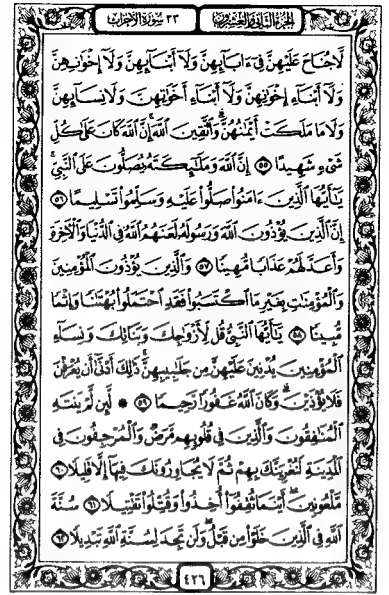 الجزء الثاني والعشرون
٣٣ سورة الأحزاب
لَّا جُنَاحَ عَلَيْهِنَّ فِىٓ ءَابَآئِهِنَّ وَلَآ أَبْنَآئِهِنَّ وَلَآ إِخْوَٰنِهِنَّ
وَلَآ أَبْنَآءِ إِخْوَٰنِهِنَّ وَلَآ أَبْنَآءِ أَخَوَٰتِهِنَّ وَلَا نِسَآئِهِنَّ
وَلَا مَا مَلَكَتْ أَيْمَٰنُهُنَّ وَٱتَّقِينَ ٱللَّهَ إِنَّ ٱللَّهَ كَانَ عَلَىٰ كُلِّ
شَىْءٍ شَهِيدًا ٥٥ إِنَّ ٱللَّهَ وَمَلَٰٓئِكَتَهُۥ يُصَلُّونَ عَلَى ٱلنَّبِىِّ
يَٰٓأَيُّهَا ٱلَّذِينَ ءَامَنُوا۟ صَلُّوا۟ عَلَيْهِ وَسَلِّمُوا۟ تَسْلِيمًا ٥٦
إِنَّ ٱلَّذِينَ يُؤْذُونَ ٱللَّهَ وَرَسُولَهُۥ لَعَنَهُمُ ٱللَّهُ فِى ٱلدُّنْيَا وَٱلْءَاخِرَةِ
وَأَعَدَّ لَهُمْ عَذَابًا مُّهِينًا ٥٧ وَٱلَّذِينَ يُؤْذُونَ ٱلْمُؤْمِنِينَ
وَٱلْمُؤْمِنَٰتِ بِغَيْرِ مَا ٱكْتَسَبُوا۟ فَقَدِ ٱحْتَمَلُوا۟ بُهْتَٰنًا وَإِثْمًا
مُّبِينًا ٥٨ يَٰٓأَيُّهَا ٱلنَّبِىُّ قُل لِّأَزْوَٰجِكَ وَبَنَاتِكَ وَنِسَآءِ
ٱلْمُؤْمِنِينَ يُدْنِينَ عَلَيْهِنَّ مِن جَلَٰبِيبِهِنَّ ذَٰلِكَ أَدْنَىٰٓ أَن يُعْرَفْنَ
فَلَا يُؤْذَيْنَ وَكَانَ ٱللَّهُ غَفُورًا رَّحِيمًا ٥٩ ۞ لَّئِن لَّمْ يَنتَهِ
ٱلْمُنَٰفِقُونَ وَٱلَّذِينَ فِى قُلُوبِهِم مَّرَضٌ وَٱلْمُرْجِفُونَ فِى
ٱلْمَدِينَةِ لَنُغْرِيَنَّكَ بِهِمْ ثُمَّ لَا يُجَاوِرُونَكَ فِيهَآ إِلَّا قَلِيلًا ٦٠
مَّلْعُونِينَ أَيْنَمَا ثُقِفُوٓا۟ أُخِذُوا۟ وَقُتِّلُوا۟ تَقْتِيلًا ٦١ سُنَّةَ
ٱللَّهِ فِى ٱلَّذِينَ خَلَوْا۟ مِن قَبْلُ وَلَن تَجِدَ لِسُنَّةِ ٱللَّهِ تَبْدِيلًا ٦٢
٤٢٦